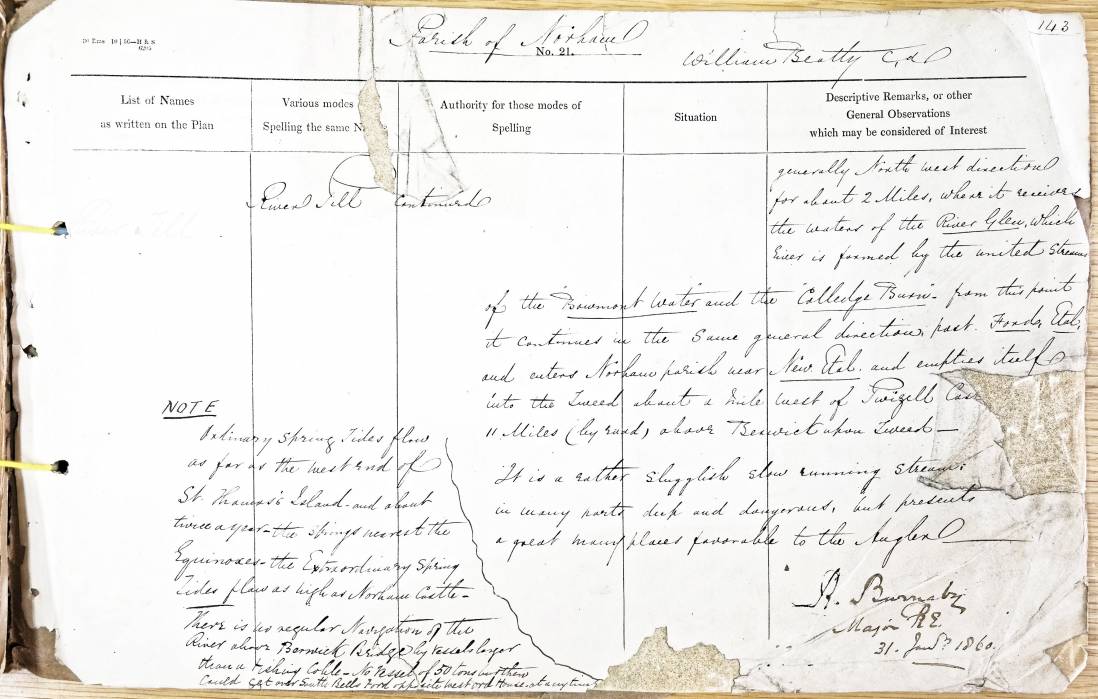 143
Parish of Norham
No. 21.
William Beatty C,a
List of Names
as written on the Plan
Various modes
Spelling the same N
Authority for those modes of
Spelling
Situation
Descriptive Remarks, or other
General Observations
which may be considered of Interest
River Till continued
generally North west direction
for about 2 Miles, where it receives
the waters of the River Glen, which
River is formed by the united Streams
of the "Bowmont Water" and the "Colledge Burn". from this point
it continues in the same general direction, past Ford, Etal,
and enters Norham parish near New Etal. and empties itself
into the Tweed about a Mile west of Twizell Cas
11 Miles (by road) above Berwick upon Tweed—
It is a rather slugglish slow running stream;
in many parts deep and dangerous, but presents
a great many places favorable to the Angler
NOTE
Ordinary Spring Tides flow
as far as the west end of
St. Thomas's Island - and about
twice a year - the springs nearest the
Equinoxes - the Extraordinary Spring
Tides flow as high as Norham Castle -
There is no regular Navigation of the
River above Berwick Bridge by Vessels larger
than a Fishing Coble - No Vessel of 50 tons
Could get over South Bells Ford opposite West ord House at any time
R. Burnaby
Major R.E.
31. Jany 1860.